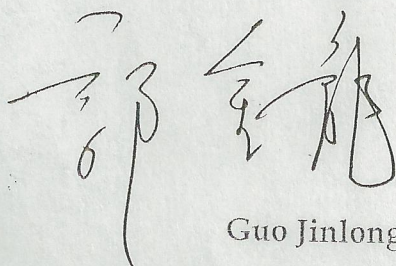 郭金龙
Guo Jinlong